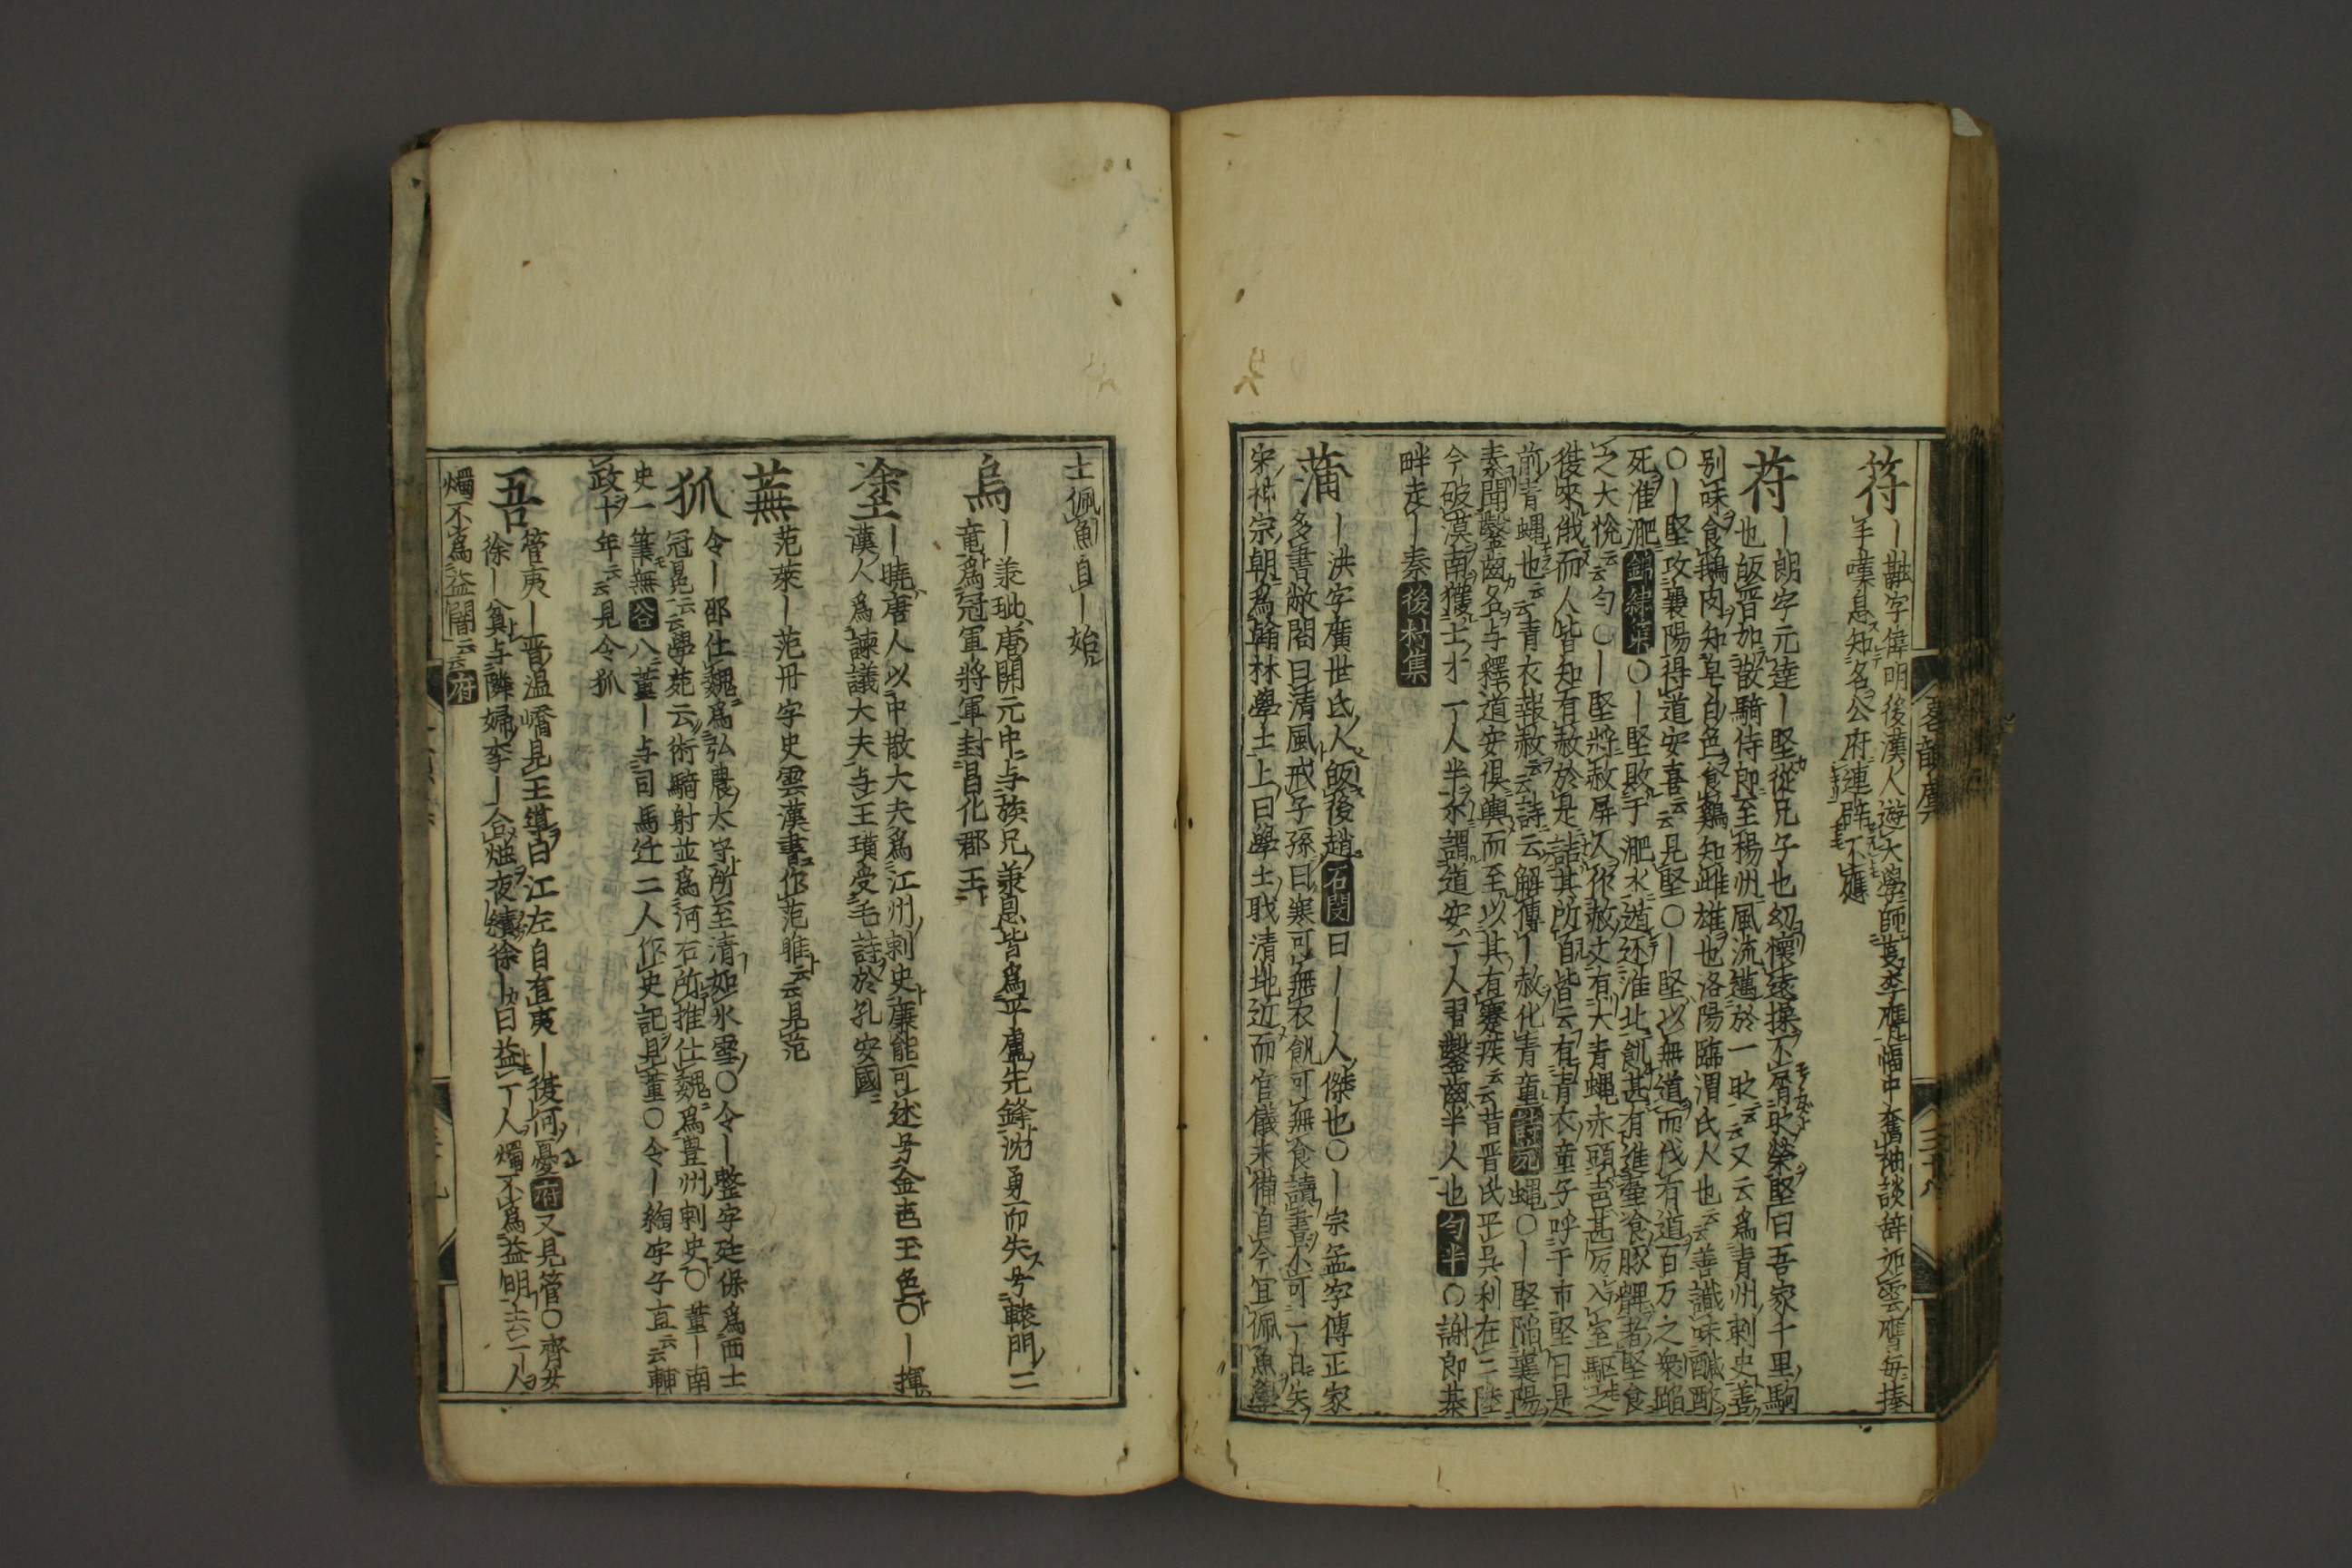 符
｜融字偉明後漢人遊大學師夏李膺幅巾奮袖談辞如雲膺每捧
手嘆息知名公府連辟不應
苻
｜朗字元達｜堅從兄子也幼懷遠操不屑時榮堅曰吾家千里駒
也皈晋加散騎侍郎至楊州風流邁於一時云云又云為青州刺史善
别味食鵝肉知皂白色食鷄知雌雄也洛陽臨渭氏人也云云善識味醎酢
〇｜堅攻襄陽得道安喜云云見堅〇｜堅以無道而伐有道百万之衆蹈
死淮淝錦綉策〇｜堅敗于淝水遁还淮北飢甚有進壷飡豚髀者堅食
之大悅云云勻〇｜堅將赦屏人作赦文有大青蝿赤頭声甚厉入室駆之
復來俄而人皆知有赦於是詰其所自皆云有青衣童子呼于市堅曰是
前青蝿也云云青衣報赦云云詩云解傳｜赦化青童蝿〇｜堅陷襄陽
素聞鑿齒名与釋道安俱輿而至以其有蹇疾云云昔晋氏平呉利在二陸
今破漠南獲士才一人半尓謂道安一人習鑿齒半人也勻半〇謝郎棊
畔走｜秦後村集
蒲
｜洪字廣世氏人皈後趙石閔曰｜｜人傑也〇｜宗孟字傳正家
多書敝閣曰清風戒子孫曰寒可無衣飢可無食讀書不可一日失
宋神宗朝為翰林學士上曰學士職清地近而官儀未備自今宜佩魚學
士佩魚自｜始
烏
｜羕玼唐開元中与族兄羕恩皆爲平盧先鋒沈勇而失号轅門二
竜爲冠軍將軍封昌化郡王
塗
｜曉唐人以中散大夫爲江州刺史廉能可述号金声玉色〇｜揮
漢人爲諫議大夫与王璜受毛詩於孔安國
蕪
范萊｜范冊字史雲漢書作范睢云云見范
狐
令｜邵仕魏爲弘農太守所至清如氷雪〇令｜整字延保爲西士
冠冕云云學苑云術騎射並爲河右所推仕魏爲豊州刺史〇董｜南
史一筆無谷八董｜与司馬迁二人作史記見董〇令｜綯字子直云云輔
政十年云云見令狐
吾
管夷｜晋温嶠見王導曰江左自有夷｜復何憂府又見管〇齊女
徐｜貧与隣婦李｜合烛夜績徐｜曰益一人燭不爲益明去一人
燭不爲益闇云云府